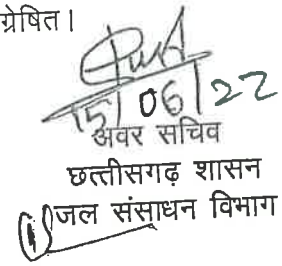 ग्रेषित।
15/06/22
अवर सचिव
छत्तीसगढ़ शासन
जल संसाधन विभाग